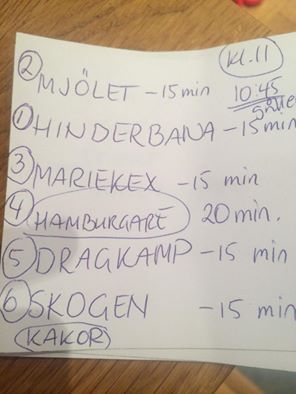 kl. 11
② MJÖLET - 15 min 10:45
① HINDERBANA - 15 min
③ MARIEKEX - 15 min
④ HAMBURGARE 20 min.
⑤ DRAGKAMP - 15 min
⑥ SKOGEN - 15 min
KAKOR